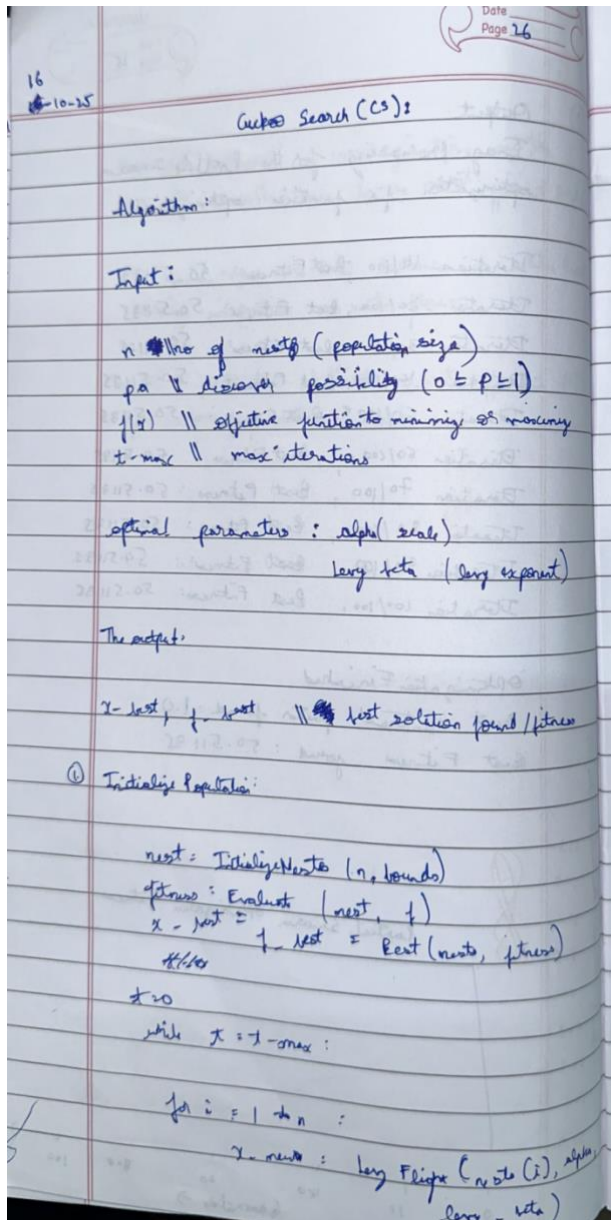 Date
Page 26
16
-10-25
Cuckoo Search (CS):
Algorithm:
Input:
n \\ no of nests (population size)
pa \\ discover possibility (0 ≤ P ≤ 1)
f(x) \\ objective function to minimiz or maximiz
t-max \\ max iterations
optimal parameters : alpha (scale)
Levy beta (levy exponent)
The output:
x-best, f-best \\ best solution found / fitness
① Initialize Population:
nest = InitializeNests (n, bounds)
fitness : Evaluate (nest, f)
x-best =
f-best = Best (nests, fitness)
t=0
while t = t-max :
for i = 1 to n :
x-new : Levy Flight (nests (i), alpha,
levy-beta)